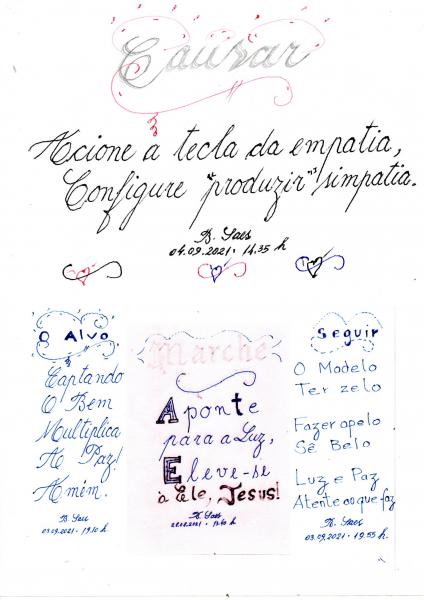 Causar
Acione a tecla da empatia,
Configure "produzir" simpatia.
B. Saes
04.09.2021 · 14.35 h
O Alvo
Captando
O Bem
Multiplica
A Paz!
Amém.
B. Saes
03.09.2021 · 19.10 h
Marche
Aponte
para a Luz,
Eleve-se
à Ele, Jesus!
B. Saes
Seguir
O Modelo
Ter zelo
Fazer apelo
Sê Belo
Luz e Paz
Atente ao que faz
B. Saes
03.09.2021 · 19.55 h.